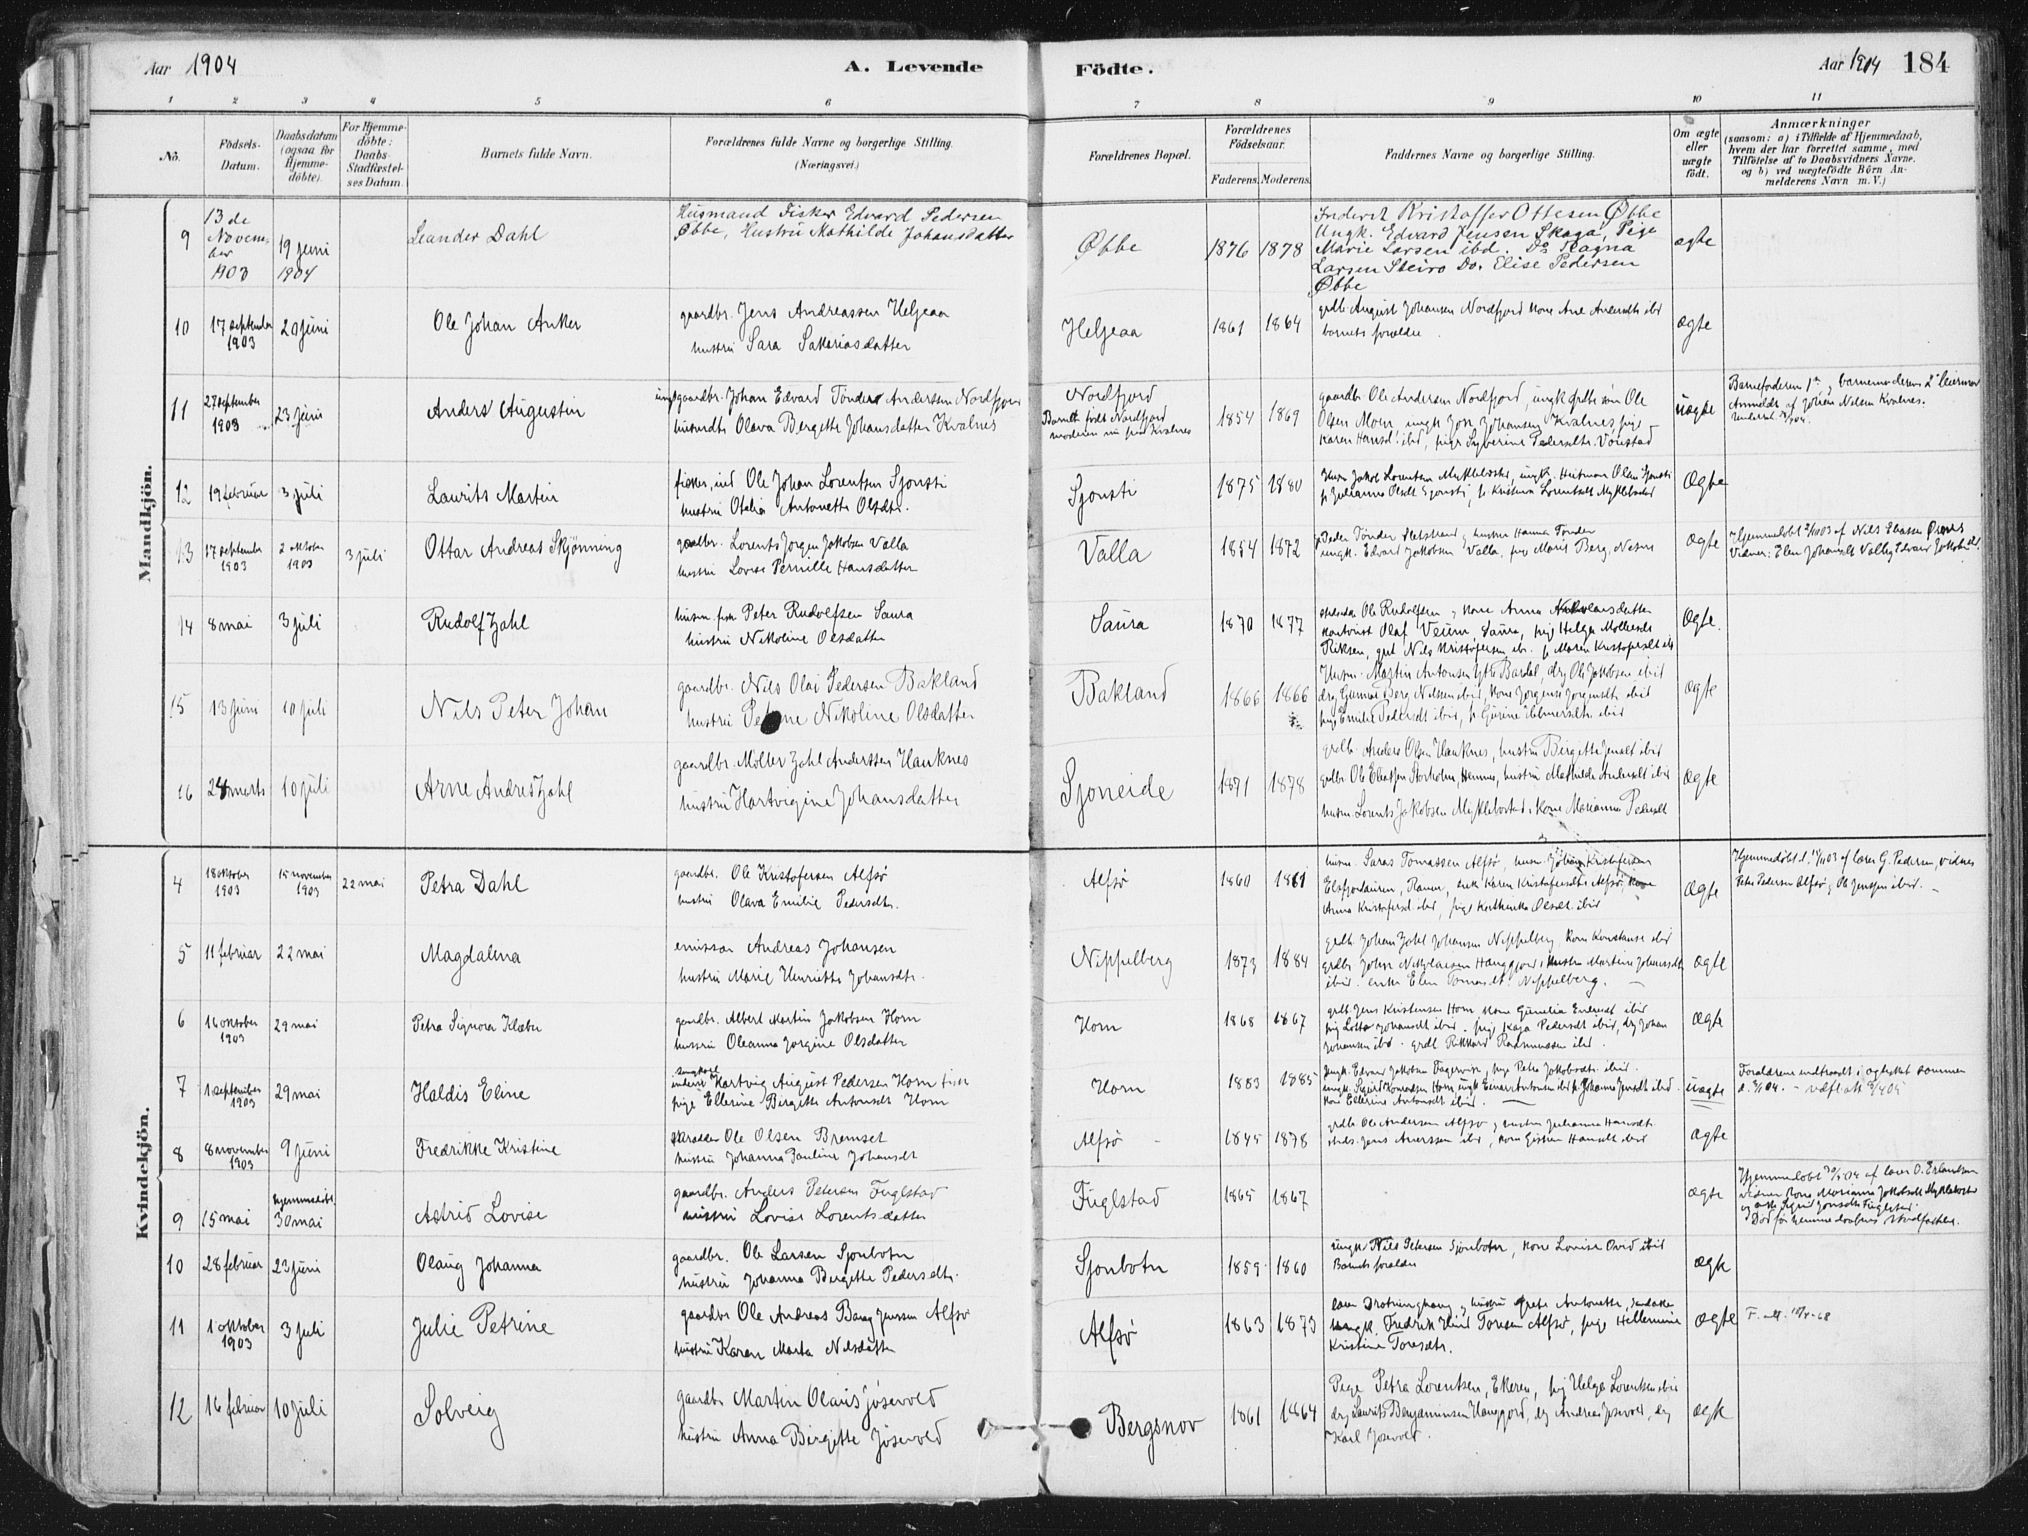 Aar 1904
A. Levende
Födte.
Aar 1904
184
1 2 3 4 5 6 7 8 9 10 11
No.
Födsels-
Datum.
Daabsdatum
(ogsaa for
Hjemme-
döbte).
For Hjemme-
döbte:
Daabs-
Stadfæstel-
ses Datum.
Barnets fulde Navn.
Forældrenes fulde Navne og borgerlige Stilling.
(Næringsvei.)
Forældrenes Bopæl.
Forældrenes
Födselsaar.
Faderens. Moderens.
Faddernes Navne og borgerlige Stilling.
Om ægte
eller
uægte
födt.
Anmærkninger
(saasom: a) i Tilfælde af Hjemmedaab,
hvem der har forrettet samme, med
Tilföielse af to Daabsvidners Navne.
og b) ved uægtefödte Börn An-
melderens Navn m. V.)
Mandkjön.
9
13 de
Novem-
ber
1903
19 juni
1904
Leander Dahl
Husmand Fisker Edvard Pedersen
Øbbe, Hustru Mathilde Johansdatter
Øbbe
1876 1878
Inderst Kristoffer Ottesen Øbbe
Ungk. Edvard Jensen Skaga, Pige
Marie Larsen ibd. Do Ragna
Larsen Steiro Do. Elise Pedersen
Øbbe
ægte
10
17 september
1903
20 juni
Ole Johan Anker
gaardbr. Jens Andreassen Heljeaa
hustru Sara Sakariasdatter
Heljeaa
1861 1864
grdb. August Johansen Nordfjord kone Ane Andersdt ibd
barnets forældre
ægte
11
27 september
1903
23 juni
Anders Augustin
ungk gaardbr. Johan Edvard Tönder Andersen Nordfjord
Olava Bergette Johansdatter Kvalnes
Nordfjord
Barnet födt Nordfjord
moderen nu paa Kvalnes
1854 1869
gaardbr Ole Andersen Nordfjord, ungk Ole
Olsen Moen, ungk Jon Johansen Kvalnes pige
Karen Hansd. ibid, pige Syverine Pedersdtr. Vonstad
uægte
Barnefaderens 1ste, barnemoderens 2det leiermaal
Anmeldt af Johan Nelsen Kvalnes.
12
19 februar
3 juli
Laurits Martin
fisker, ind Ole Johan Lorentsen Sjonsti
hustru Otelia Antonette Olsdtr.
Sjonsti
1875 1880
Husm Jakob Lorentsen Myklebostad, ungk. Hartman Olsen Sjonsti
p Julianne Olsdt Sjonsti, p Kristina Lorentsdt Myklebostad
Ægte
13
17 september
1903
2 oktober
1903
3 juli
Ottar Andreas Skjönning
gaardbr. Lorents Jörgen Jakobsen Valla
hustru Lovise Pernille Hansdatter
Valla
1854 1872
Peder Tönder Helstrand, hustru Hanna Tönder
ungk. Edvard Jakobsen Valla, pige Marie Berg, Nesna
ægte
Hjemmedöbt 2/10 03 af Nils
Vidner: Elen Johansdt Valla, Edvard Jakobs. ibd.
14
8 mai
3 juli
Rudolf Zahl
husm. fisk Peter Rudolfsen Saura
hustru Nikoline Olsdatter
Saura
1870 1877
Ole Rudolfsen, kone Anna Nikolaisdatter
kontorist Olaf Veum, Saura, pige Helga Möllersdt
Nils Kristofersen ibr. p Maren Kristofersdt ibd
Ægte.
15
13 juni
10 juli
Nils Peter Johan
gaardbr. Nils Olai Pedersen Bakland
hustru Nikoline Olsdatter
Bakland
1866 1866
Husm. Martin Antonsen Bardal, drg Ole Jakobsen ibid
drg Gunnar Berg Nilsen ibid, kone Jorgine Jorgensdt ibid
pige Emilie Pedersdt ibid, p Gurine ibid
ægte
16
28 marts
10 juli
Arne Andres Zahl
gaardbr. Möller Zahl Anderssen Hauknes
hustru Hartvigine Johansdatter
Sjoneide
1871 1878
grdb. Anders Olsen Hauknes, hustru Birgitte Jensdt ibid
grdbr Ole Eliassen Storholm, Hemnes, hustru Mathilde Andersdt ibid
husm. Lorents Jakobsen Myklebostad, kone Marianna Pedersdt
ægte
Kvindekjön.
4
18 oktober
1903
15 november
1903
22 mai
Petra Dahl
gaardbr. Ole Kristofersen Alfsö
hustru Olava Emilie Pedersdtr.
Alfsö
1860 1861
husm. Saras Tomassen Alfsö, husm. Johan Kristofersen
Ranen, enk Karen Kristofersdt Alfsö, kone
Anna Kristofersd. ibid, pige Katherika Olsdt. ibid
ægte
Hjemmedöbt d. 15/11 03 af lærer G. Pedersen, vidner
Peter Pedersen Alfsö, Ole Jenssen ibid.
5
11 februar
22 mai
Magdalena
emissær Andreas Johansen
hustru Marie Henriette Johansdtr.
Nippelberg
1873 1884
grdb. Johan Zahl Johansen Nippelberg, kone Konstanse ibid
grdbr John Nikolaisen Haugfjord, hustru Martine Johansdt
ibid. enke Elen Tomasdt Nippelberg.
ægte
6
16 oktober
1903
29 mai
Petra Signora Klæbu
gaardbr. Albert Martin Jakobsen Horn
hustru Oleanna Jorgine Olsdatter
Horn
1868 1867
grdb. Jens Kristensen Horn, kone Gunelia ibid
pige Lotta Johansdt ibid. pige Kaja Pedersdt ibid, drg Johan
Johansen ibd. grdb Rikhard Rasmussen ibd.
ægte
7
1 september
1903
29 mai
Haldis Eline
ungkarl
inderst Hartvig August Pedersen Horn fisker
pige Ellerine Birgitte Antonsdt Horn
Horn
1883 1885
Ungk. Edvard Jakobsen Fagervik, pige Petra Jakobsdtr ibid.
ungk. Sigurd Konradsen Horn, ungk Einar Antonsen ibd p. Johanna Jensdt ibid.
kone Ellerine Antonsdt ibid.
uægte
Forældrene indtraadt i ægteskab sammen
8
8 november
1903
9 juni
Fredrikke Kristine
skrædder Ole Olsen Bremset
hustru Johanna Pauline Johansdt
Alfsö
1845 1878
grdb Ole Andersen Alfsö, hustru Johanna Hansdt.
Jens Anerssen ibd, kone Hansdt ibid
ægte
9
15 mai
Hjemmedöbt
30 mai
Astrid Lovise
gaardbr. Anders Petersen Fuglstad
hustru Lovise Lorentsdatter
Fuglstad
1865 1867
ægte
Hjemmedöbt 30/5 04 af lærer O. Erlandsen
vidner kone Marianna Jakobsdt Myklebostad
og enke Sigrid Jonsdtr Fuglstad.
Död för hjemmedaabens stadfæstelse.
10
28 februar
23 juni
Olaug Johanna
gaardbr. Ole Larsen Sjonbotn
hustru Johanna Bergette Pedersdtr.
Sjonbotn
1859 1860
ungk Nils Petersen Sjonbotn, kone Lovise Ovid ibid
Barnets forældre
ægte
11
1 oktober
1903
3 juli
Julie Petrine
gaardbr Ole Andreas Bang Jenssen Alfsö
hustru Karen Marta Nilsdatter
Alfsö
1863 1873
lærer Drotninghaug, hustru Grete Antonette,
ungk. Fredrik Toresen Alfsö, pige Hellemine
Kristine Toresdtr.
ægte
12
16 februar
10 juli
Solveig
gaardbr Martin Olaus Jösevold
hustru Anna Birgitte Jösevold
Bergsnov
1861 1864
Pige Petra Lorentsen, Ekeren, pig Helga Lorentsen ibid
drg Laurits Benjaminsen Haugfjord, drg Andreas Josevold, drg
Karl Josevold.
ægte